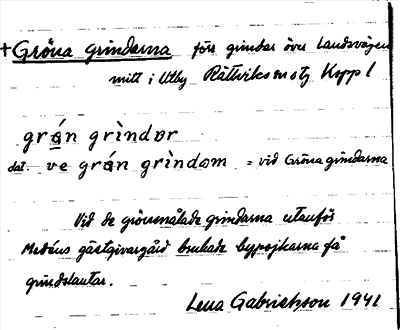 + Gröna grindarna förr grindar över landsvägen
mitt i Utby Rättviks sn o tg Kopp l
grǻn grìndɒr
dat. ve grǻn grìndom = vid Gröna grindarna
Vid de grönmålade grindarna utanför
gästgivargård brukade bypojkarna få
grindslantar.
Lena Gabrielsson 1941